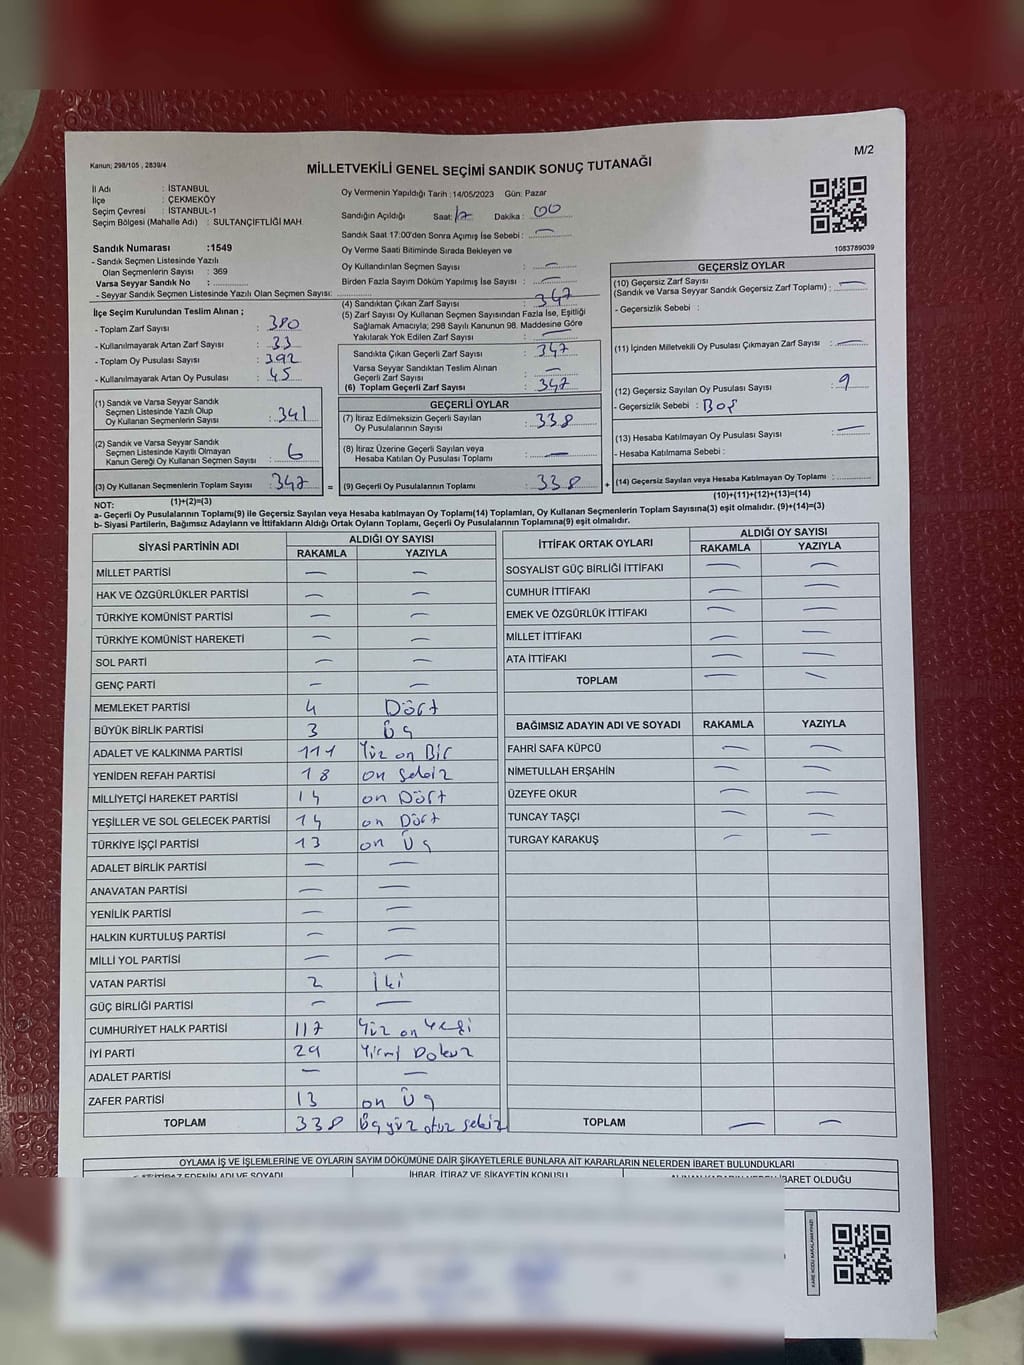 Kanun; 298/105 , 2839/4
M/2
MİLLETVEKİLİ GENEL SEÇİMİ SANDIK SONUÇ TUTANAĞI
İl Adı : İSTANBUL
İlçe : ÇEKMEKÖY
Seçim Çevresi : İSTANBUL-1
Seçim Bölgesi (Mahalle Adı) : SULTANÇİFTLİĞİ MAH.
Sandık Numarası :1549
- Sandık Seçmen Listesinde Yazılı
Olan Seçmenlerin Sayısı : 369
Varsa Seyyar Sandık No :
- Seyyar Sandık Seçmen Listesinde Yazılı Olan Seçmen Sayısı:
Oy Vermenin Yapıldığı Tarih : 14/05/2023 Gün: Pazar
Sandığın Açıldığı Saat: 17 Dakika : 00
Sandık Saat 17:00'den Sonra Açımış İse Sebebi : —
Oy Verme Saati Bitiminde Sırada Bekleyen ve
Oy Kullandırılan Seçmen Sayısı : —
Birden Fazla Sayım Döküm Yapılmış İse Sayısı : —
1083789039
İlçe Seçim Kurulundan Teslim Alınan ;
- Toplam Zarf Sayısı : 380
- Kullanılmayarak Artan Zarf Sayısı : 33
- Toplam Oy Pusulası Sayısı : 392
- Kullanılmayarak Artan Oy Pusulası : 45
(1) Sandık ve Varsa Seyyar Sandık
Seçmen Listesinde Yazılı Olup
Oy Kullanan Seçmenlerin Sayısı : 341
(2) Sandık ve Varsa Seyyar Sandık
Seçmen Listesinde Kayıtlı Olmayan
Kanun Gereği Oy Kullanan Seçmen Sayısı : 6
(3) Oy Kullanan Seçmenlerin Toplam Sayısı : 347
(1)+(2)=(3)
(4) Sandıktan Çıkan Zarf Sayısı : 347
(5) Zarf Sayısı Oy Kullanan Seçmen Sayısından Fazla İse, Eşitliği
Sağlamak Amacıyla; 298 Sayılı Kanunun 98. Maddesine Göre
Yakılarak Yok Edilen Zarf Sayısı : —
Sandıkta Çıkan Geçerli Zarf Sayısı : 347
Varsa Seyyar Sandıktan Teslim Alınan
Geçerli Zarf Sayısı : —
(6) Toplam Geçerli Zarf Sayısı : 347
GEÇERLİ OYLAR
(7) İtiraz Edilmeksizin Geçerli Sayılan
Oy Pusulalarının Sayısı : 338
(8) İtiraz Üzerine Geçerli Sayılan veya
Hesaba Katılan Oy Pusulası Toplamı : —
= (9) Geçerli Oy Pusulalarının Toplamı : 338
GEÇERSİZ OYLAR
(10) Geçersiz Zarf Sayısı
(Sandık ve Varsa Seyyar Sandık Geçersiz Zarf Toplamı) : —
- Geçersizlik Sebebi :
(11) İçinden Milletvekili Oy Pusulası Çıkmayan Zarf Sayısı : —
(12) Geçersiz Sayılan Oy Pusulası Sayısı : 9
- Geçersizlik Sebebi : Boş
(13) Hesaba Katılmayan Oy Pusulası Sayısı : —
- Hesaba Katılmama Sebebi :
+ (14) Geçersiz Sayılan veya Hesaba Katılmayan Oy Toplamı :
(10)+(11)+(12)+(13)=(14)
NOT:
a- Geçerli Oy Pusulalarının Toplamı(9) ile Geçersiz Sayılan veya Hesaba katılmayan Oy Toplamı(14) Toplamları, Oy Kullanan Seçmenlerin Toplam Sayısına(3) eşit olmalıdır. (9)+(14)=(3)
b- Siyasi Partilerin, Bağımsız Adayların ve İttifakların Aldığı Ortak Oyların Toplamı, Geçerli Oy Pusulalarının Toplamına(9) eşit olmalıdır.
SİYASİ PARTİNİN ADI ALDIĞI OY SAYISI
RAKAMLA YAZIYLA
MİLLET PARTİSİ — —
HAK VE ÖZGÜRLÜKLER PARTİSİ — —
TÜRKİYE KOMÜNİST PARTİSİ — —
TÜRKİYE KOMÜNİST HAREKETİ — —
SOL PARTİ — —
GENÇ PARTİ — —
MEMLEKET PARTİSİ 4 Dört
BÜYÜK BİRLİK PARTİSİ 3 Üç
ADALET VE KALKINMA PARTİSİ 111 Yüz on Bir
YENİDEN REFAH PARTİSİ 18 on sekiz
MİLLİYETÇİ HAREKET PARTİSİ 14 on Dört
YEŞİLLER VE SOL GELECEK PARTİSİ 14 on Dört
TÜRKİYE İŞÇİ PARTİSİ 13 on Üç
ADALET BİRLİK PARTİSİ — —
ANAVATAN PARTİSİ — —
YENİLİK PARTİSİ — —
HALKIN KURTULUŞ PARTİSİ — —
MİLLİ YOL PARTİSİ — —
VATAN PARTİSİ 2 İki
GÜÇ BİRLİĞİ PARTİSİ — —
CUMHURİYET HALK PARTİSİ 117 Yüz on Yedi
İYİ PARTİ 29 Yirmi Dokuz
ADALET PARTİSİ — —
ZAFER PARTİSİ 13 on Üç
TOPLAM 338 Üçyüz otuz sekiz
İTTİFAK ORTAK OYLARI ALDIĞI OY SAYISI
RAKAMLA YAZIYLA
SOSYALİST GÜÇ BİRLİĞİ İTTİFAKI — —
CUMHUR İTTİFAKI — —
EMEK VE ÖZGÜRLÜK İTTİFAKI — —
MİLLET İTTİFAKI — —
ATA İTTİFAKI — —
TOPLAM — —
BAĞIMSIZ ADAYIN ADI VE SOYADI RAKAMLA YAZIYLA
FAHRİ SAFA KÜPCÜ — —
NİMETULLAH ERŞAHİN — —
ÜZEYFE OKUR — —
TUNCAY TAŞÇI — —
TURGAY KARAKUŞ — —
TOPLAM — —
OYLAMA İŞ VE İŞLEMLERİNE VE OYLARIN SAYIM DÖKÜMÜNE DAİR ŞİKAYETLERLE BUNLARA AİT KARARLARIN NELERDEN İBARET BULUNDUKLARI
ADI VE SOYADI İHBAR, İTİRAZ VE ŞİKAYETİN KONUSU İBARET OLDUĞU